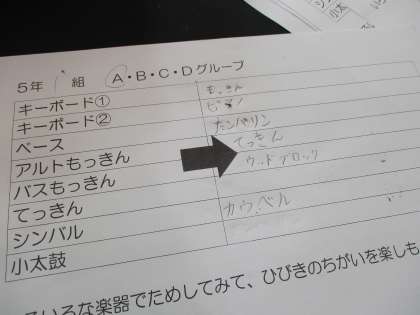 シン
小太
5年 1 組 A・B・C・Dグループ
キーボード① もっきん
キーボード② ピアノ
ベース タンバリン
アルトもっきん てっきん
バスもっきん ウッドブロック
てっきん
シンバル カウベル
小太鼓
いろな楽器でためしてみて、ひびきのちがいを楽しも